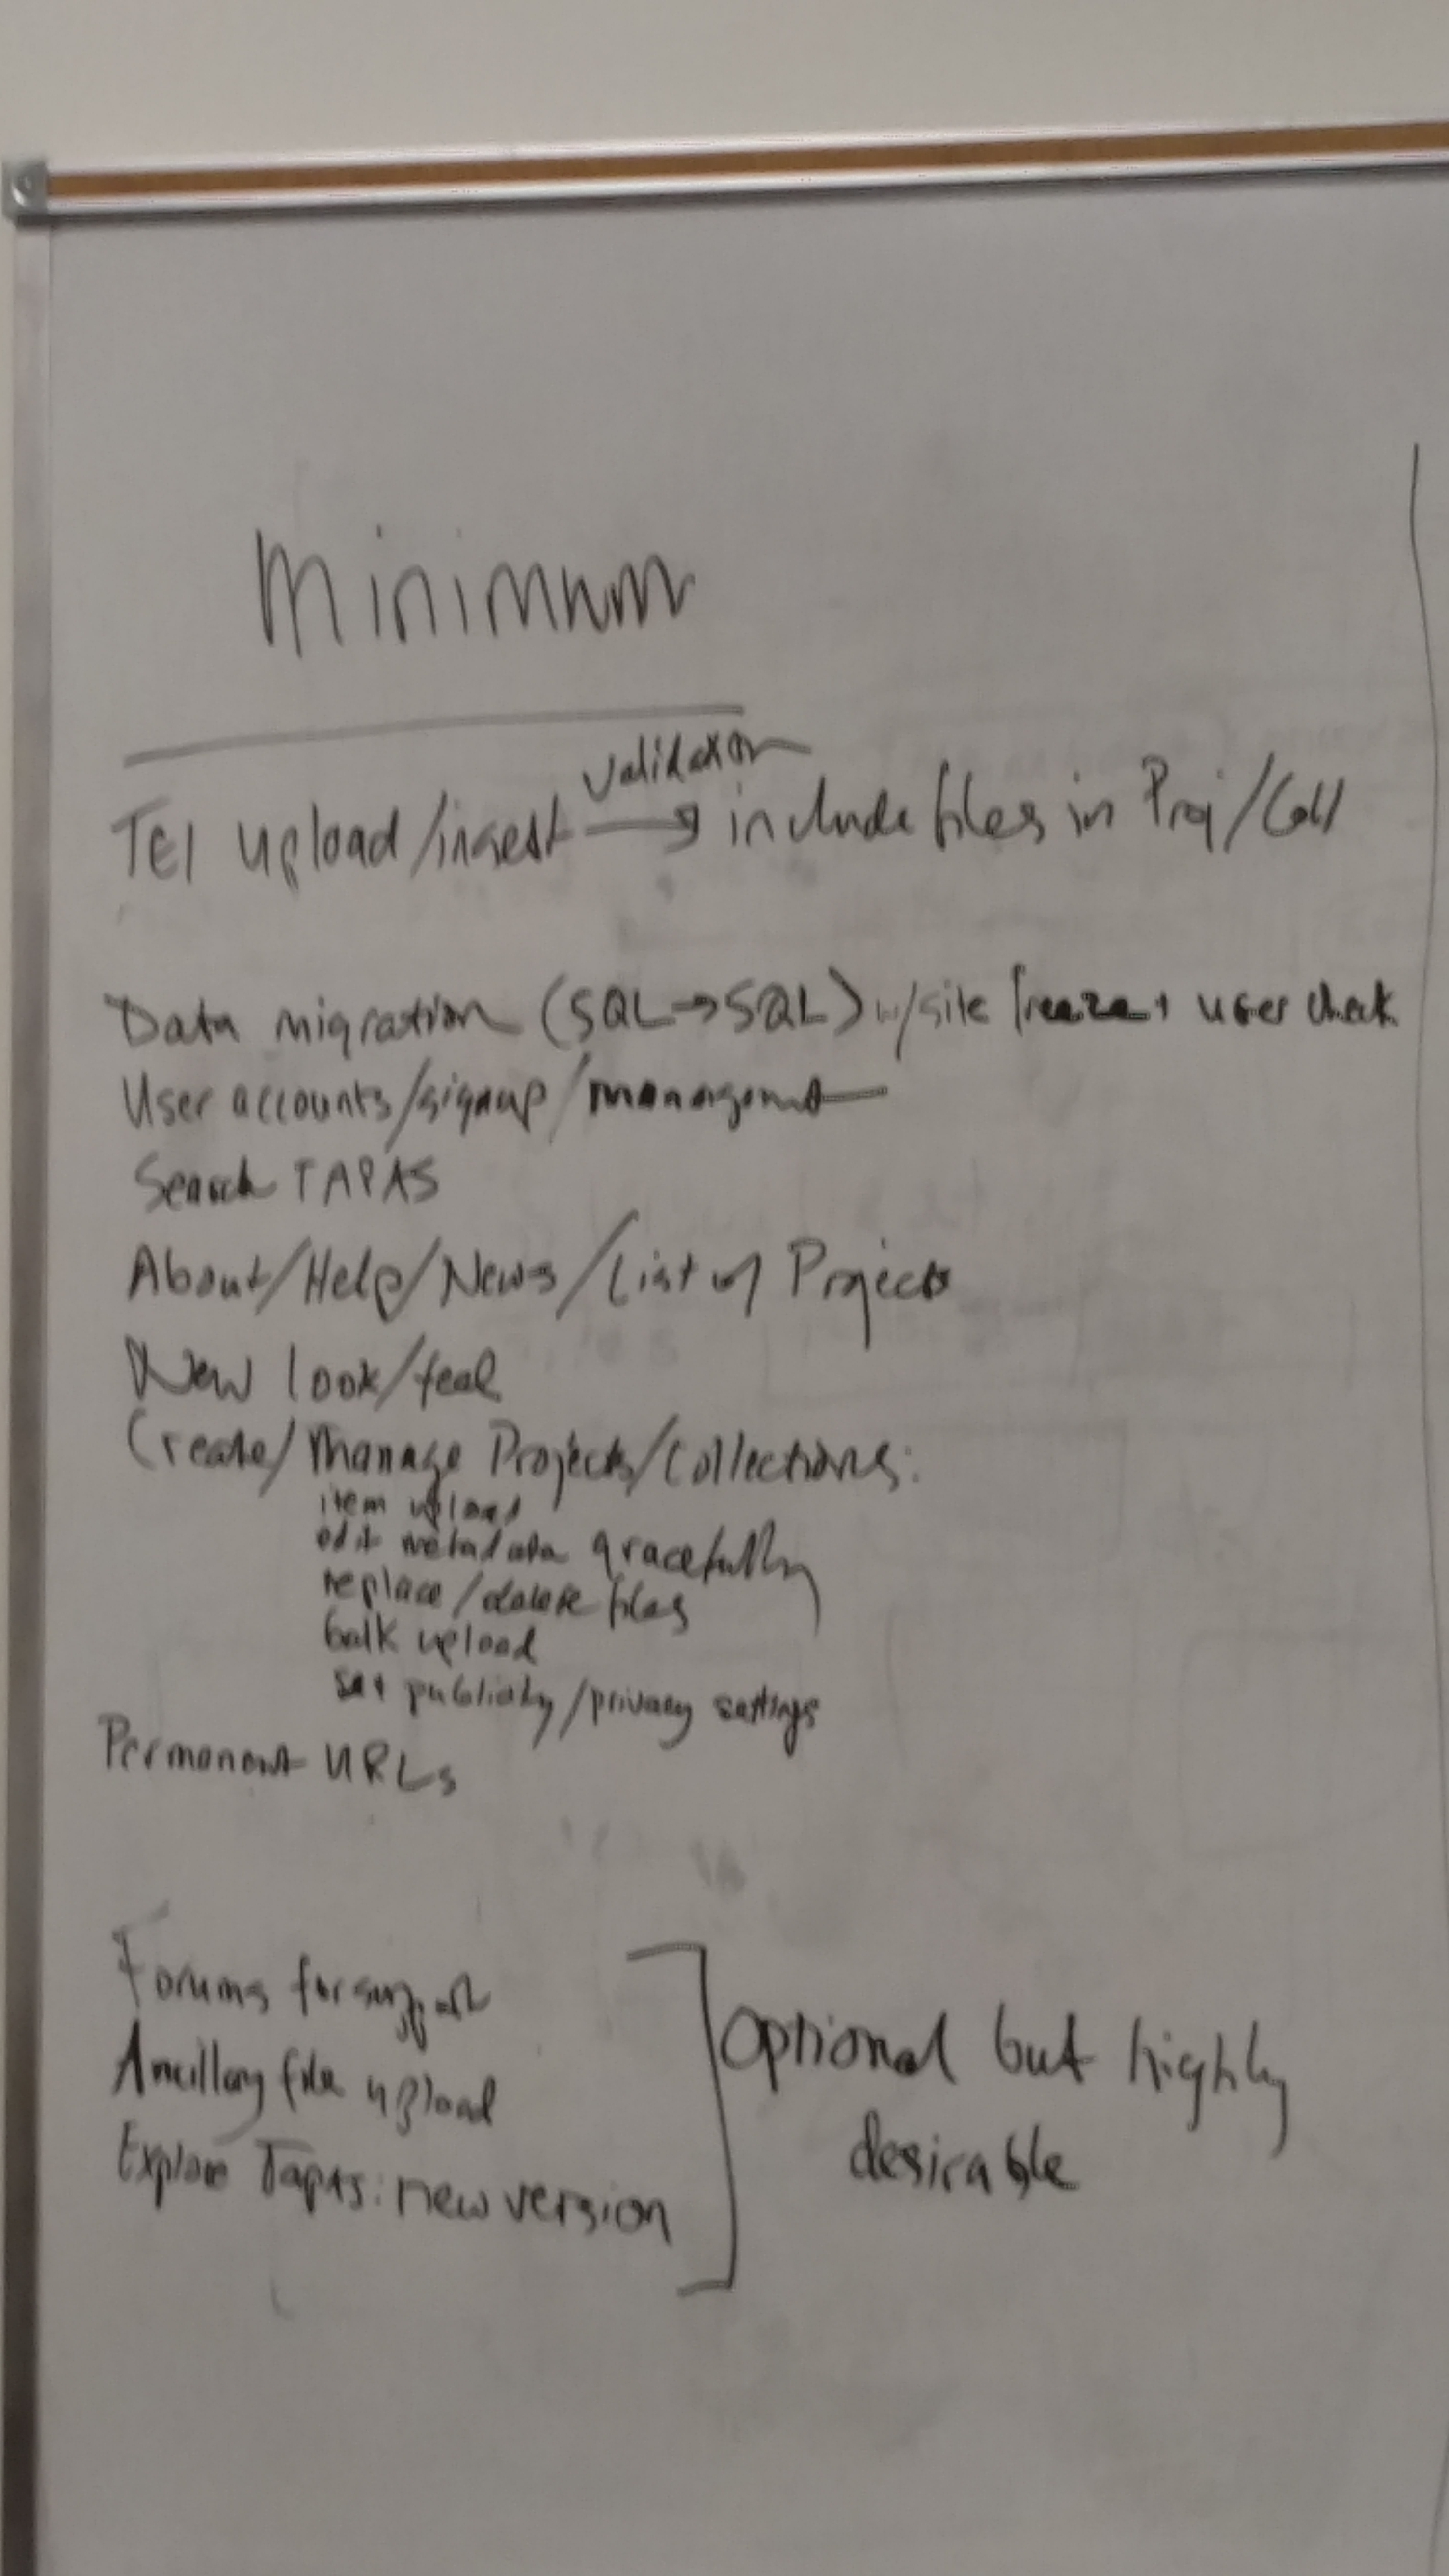 Minimum
validation
TEI upload/ingest → include files in Proj/Coll
Data migration (SQL→SQL) w/site freeze + user check
User accounts/signup/management
Search TAPAS
About/Help/News/List of Projects
New look/feel
Create/Manage Projects/Collections:
item upload
edit metadata gracefully
replace/delete files
bulk upload
set publicity/privacy settings
Permanent URLs
Forums for support
Ancillary file upload
Explore Tapas: new version
Optional but highly
desirable